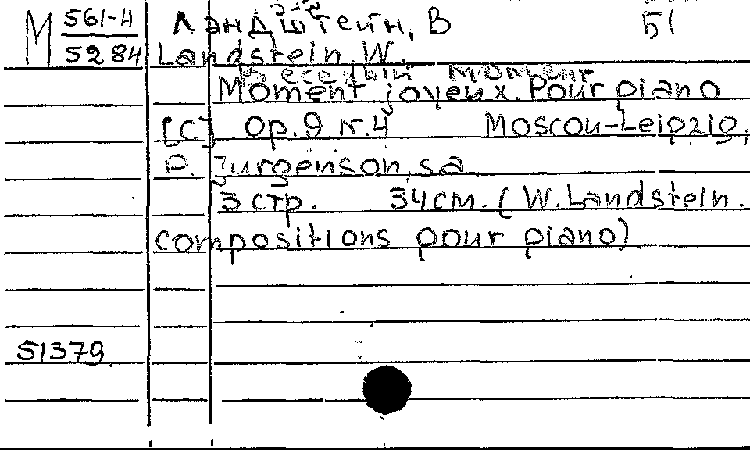 M 561-4 Ландштейн, В Б1
5284 Landstein, W.
Веселый момент
Moment joyeux. Pour piano
[C] Op. 9 n. 4 Moscou-Leipzig,
P. Jurgenson, s.a
3 стр. 34 см. (W. Landstein.
compositions pour piano)
51379